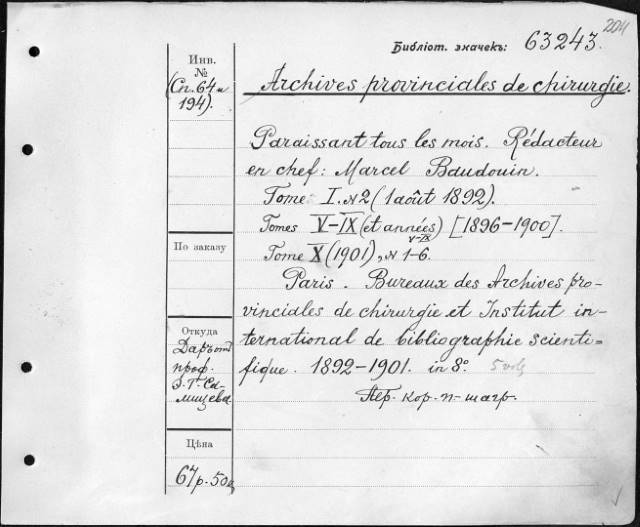 204
Библіот. значекъ: 63243.
Инв.
№
(Сп. 64 и
194).
Archives provinciales de chirurgie.
Paraissant tous les mois. Rédacteur
en chef: Marcel Baudouin.
Tome I. N2 (1 août 1892).
Tomes V-IX (et années V-IX) [1896-1900].
Tome X (1901), N 1-6.
Paris. Bureaux des Archives pro-
vinciales de chirurgie et Institut in-
ternational de bibliographie scienti=
fique. 1892-1901. in 8º. 5 vol
Пер. кор. п. шагр.
По заказу
Откуда
Даръ отъ
проф.
Цѣна
67 р. 50